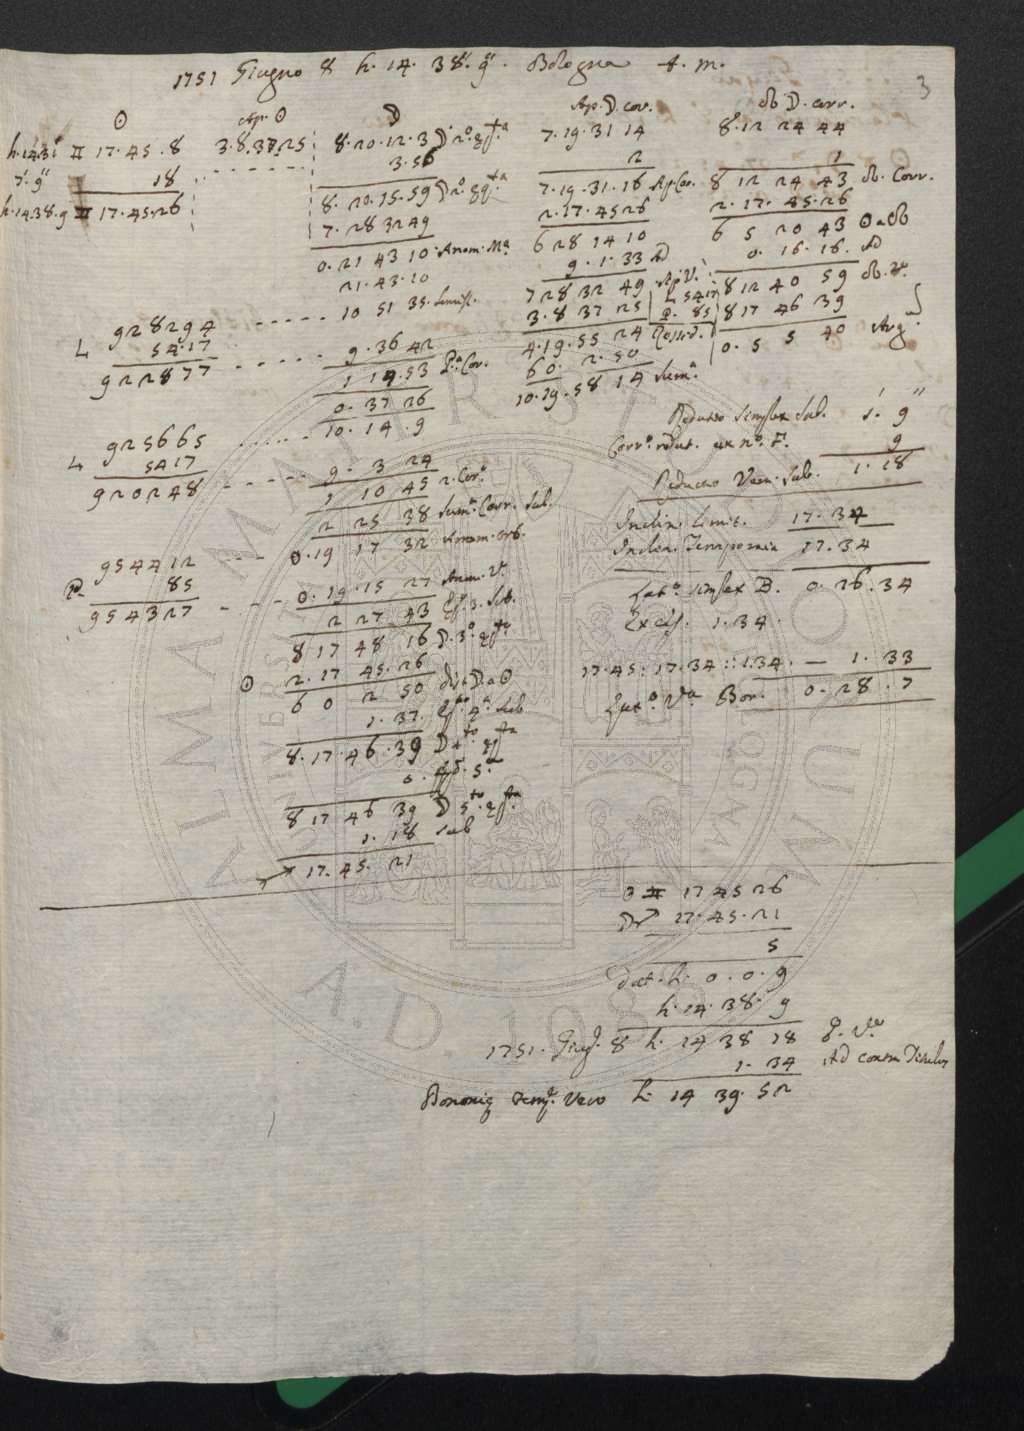 3
1751 Giugno 8 h. 14. 38'. 9''. Bologna t. m.
☉
Ap. ☉
☽
Ap. ☽. cor.
☊ ☽. corr.
h. 14.31 ♊ 17.45.8
3.8.37.25
8.20.12.3 ☽ 2.° eq.ta
7.19.31 14
8.12 24 44
7'. 9'' 18
3.56
2
1
h.14.38.9 ♊ 17.45.26
8.20.15.59 ☽ 2.° eq.ta
7.19.31.16 Ap Cor.
8 12 24 43 ☊. Corr.
7.28 32 49
2.17.45 26
2.17.45.26
0.21 43 10. Anom. M.a
6 28 14 10
6 5 20 43 ☉ a ☊
21.43.10
9.1.33 Ad
0.16.16. Ad
10 51 35. Semis.
7 28 32 49 Ap. V.
8 12 40 59 ☊. V.
3.8 37 25
8 17 46 39
L. 5417
P. 85
928294
4.19.55 24
0.5 5 40 Arg.
L 54.17
9.36 42
60. 2.50
922877
1 14.53 P.a Cor.
10.19.58 14 Sum.a
0.37 26
10.14.9
Reductio Simplex Sub. 1'. 9''
925665
Corr.o redut. ex n.o F. 9
L 5417
9. 3 24
Reductio Vera. Sub. 1.18
920248
1 10 45 2. Cor.
2 25 38 Sum.a Corr. Sub.
Inclin. Limit. 17.34
0.19 17 32 Anom. orb.
Inclin. Temporaria 17.34
954412
P. 85
0.19.15 27 Anom. V.
Lat.o simplex B. 0.26.34
954327
2 27 43 Eq. 3. Sub.
Exces. 1.34.
8 17 48 16 ☽. 3.° eq.ta
☉ 2.17 45.26
17.45 : 17.34 :: 1.34. — 1.33
6 0 2 50 dist. ☽ a ☉
Lat.o V.a Bor. 0.28.7
1.37. Eq. 4.a Sub
8.17.46.39 ☽ 4.to eq.ta
0.
8 17 46 39 ☽ 5.to eq.ta
1.18 Sub
♐ 17.45.21
♊ 17 45 26
☽ ♐ 17.45.21
5
dat. h. 0.0.9
h. 14 38. 9
1751. Giug. 8 h. 14 38 18 T. V.o
1. 34 Ad
Bononiæ temp. vero h. 14 39. 52